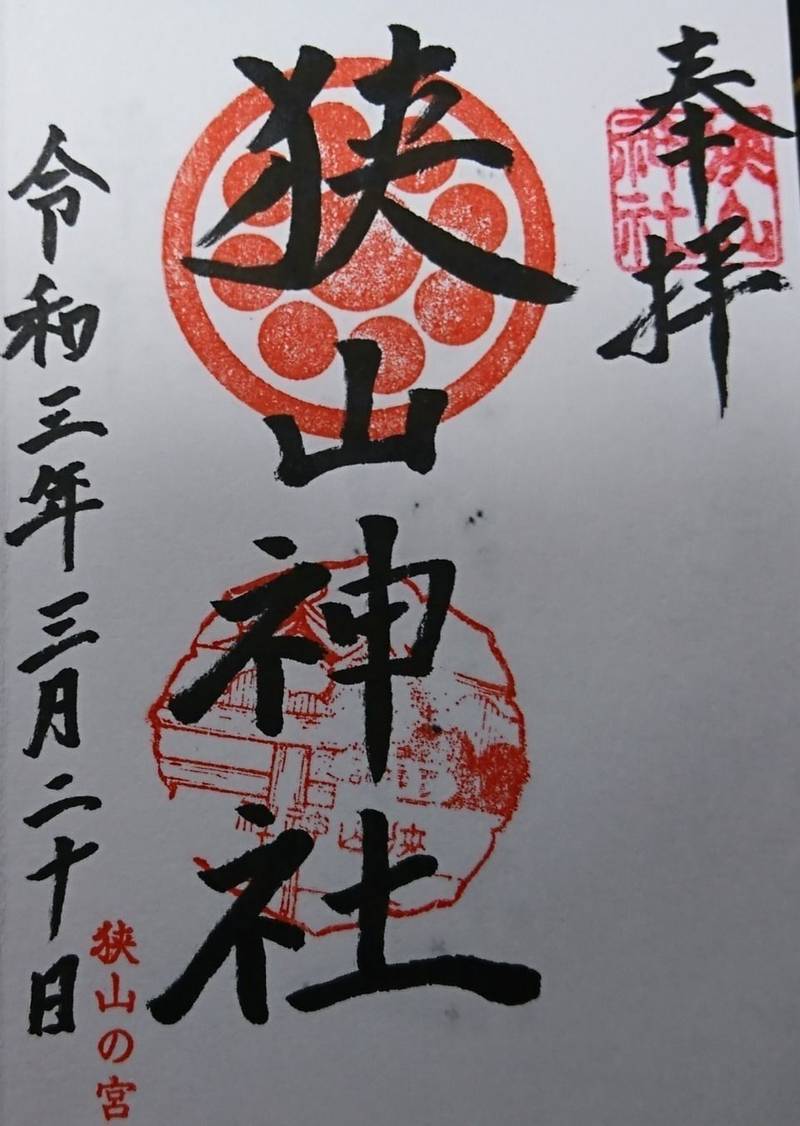 奉拝
狭山神社
狭山神社
狭山神社
令和三年三月二十日
狭山の宮